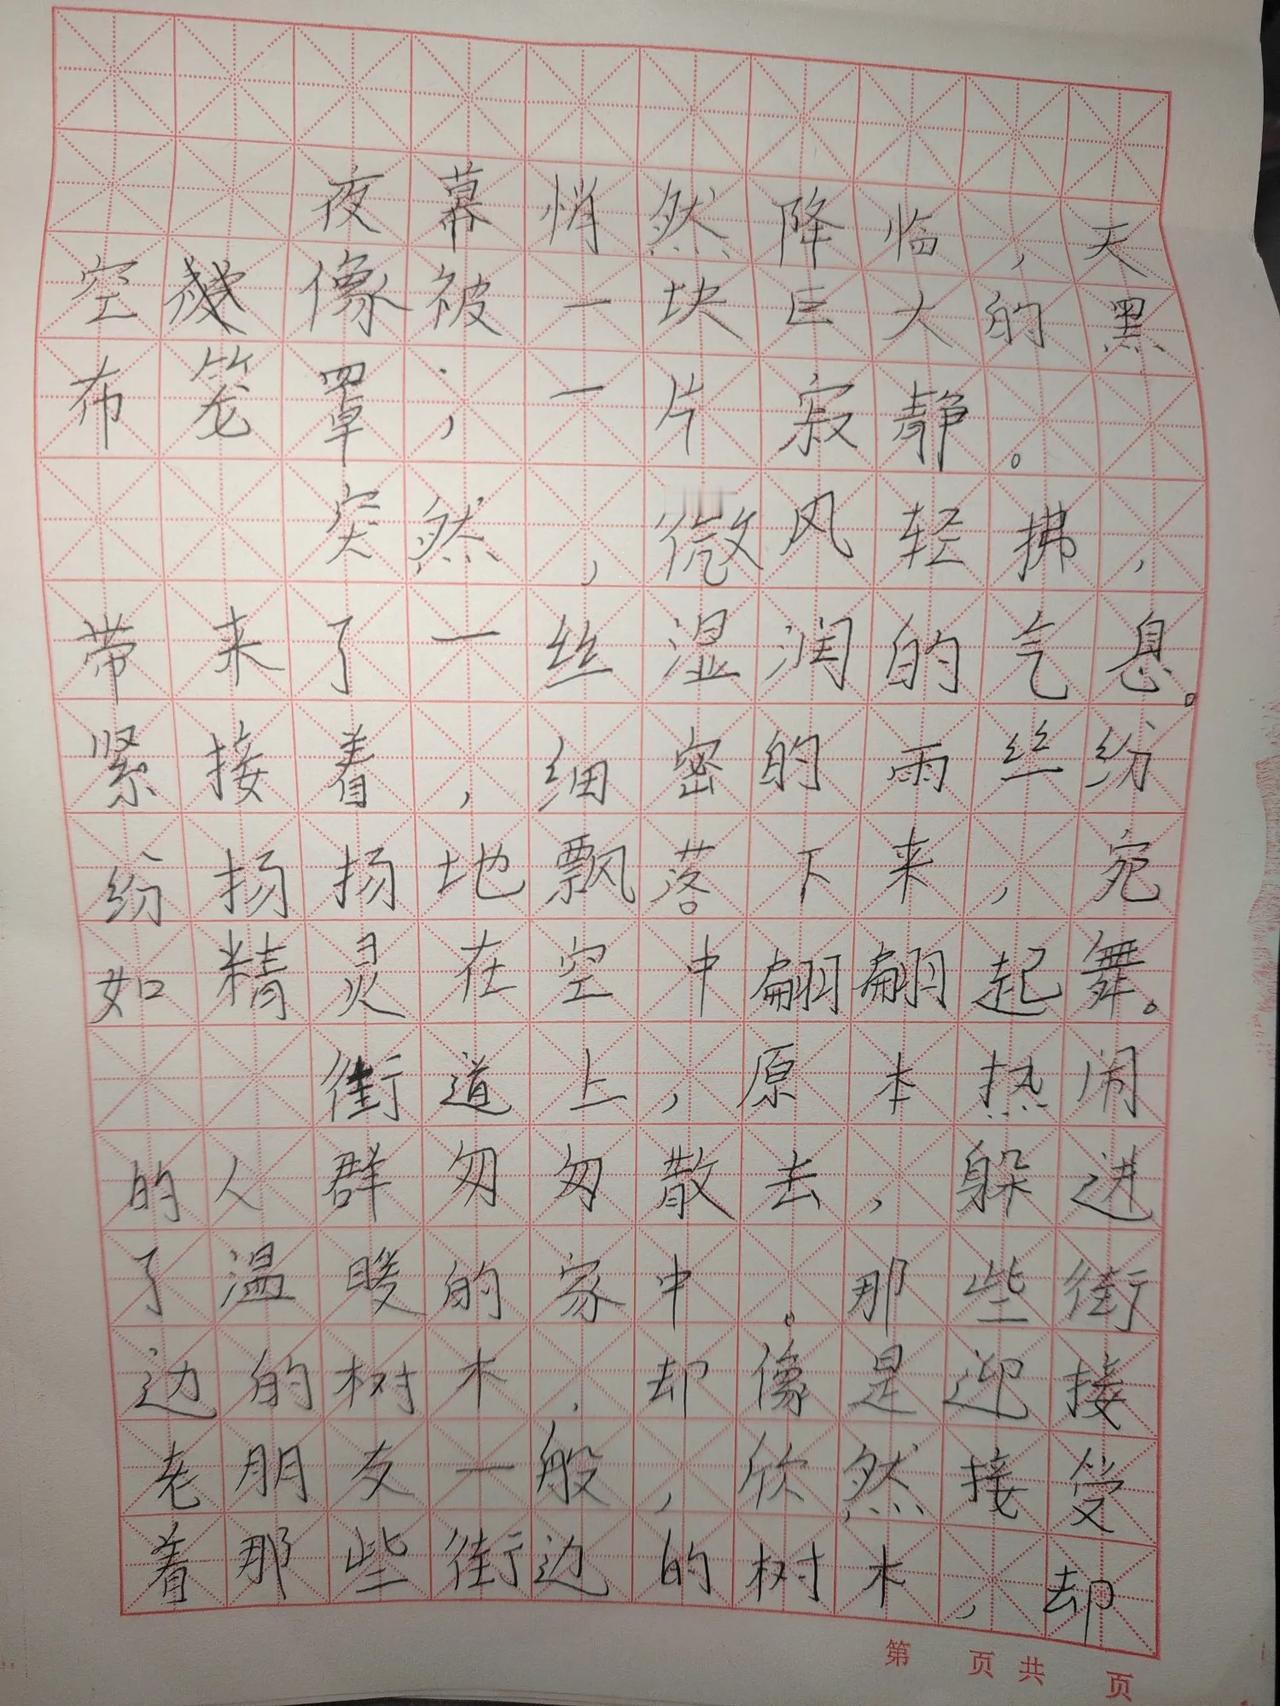 夜幕悄然降临，天
空像被一块巨大的黑
布笼罩，一片寂静。
突然，微风轻拂，
带来了一丝湿润的气息。
紧接着，细密的雨丝纷
纷扬扬地飘落下来，宛
如精灵在空中翩翩起舞。
街道上，原本热闹
的人群匆匆散去，躲进
了温暖的家中。那些街
边的树木，却像是迎接
老朋友一般，欣然接受
着那些街边的树木，却
第 页共 页